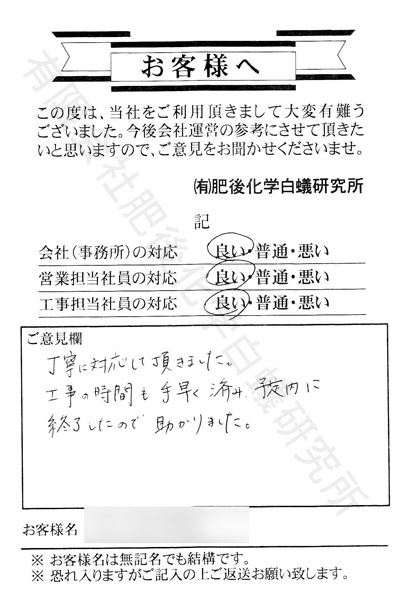 お客様へ
この度は、当社をご利用頂きまして大変有難う
ございました。今後会社運営の参考にさせて頂きた
いと思いますので、ご意見をお聞かせくださいませ。
㈲肥後化学白蟻研究所
記
会社（事務所）の対応　良い・普通・悪い
営業担当社員の対応　良い・普通・悪い
工事担当社員の対応　良い・普通・悪い
ご意見欄
丁寧に対応して頂きました。
工事の時間も手早く済み、予定内に
終了したので助かりました。
お客様名
※ お客様名は無記名でも結構です。
※ 恐れ入りますがご記入の上ご返送お願い致します。
有限会社肥後化学白蟻研究所